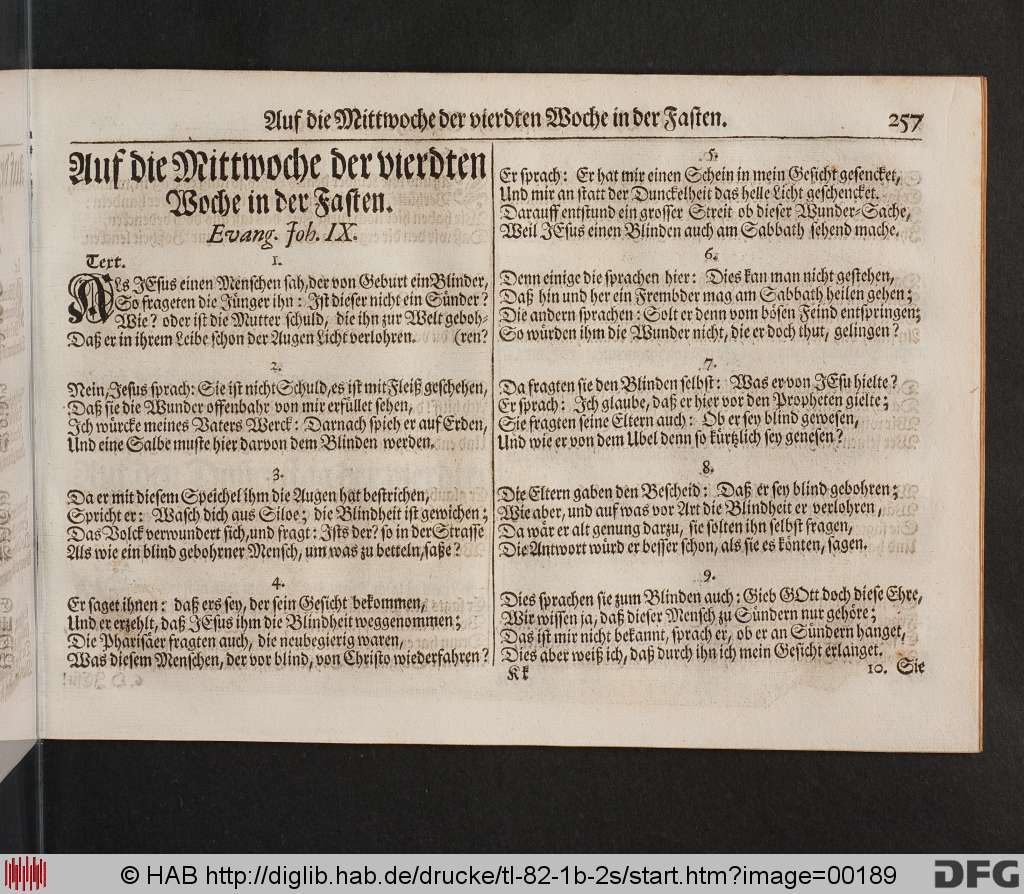 Auf die Mittwoche der vierdten Woche in der Fasten. 257
Auf die Mittwoche der vierdten
Woche in der Fasten.
Evang. Joh. IX.
Text. 1.
ALs JEsus einen Menschen sah, der von Geburt ein Blinder,
So frageten die Jünger ihn: Ist dieser nicht ein Sünder?
Wie? oder ist die Mutter schuld, die ihn zur Welt geboh-
Daß er in ihrem Leibe schon der Augen Licht verlohren. (ren?
2.
Nein, Jesus sprach: Sie ist nicht Schuld, es ist mit Fleiß geschehen,
Daß sie die Wunder offenbahr von mir erfüllet sehen,
Ich würcke meines Vaters Werck: Darnach spieh er auf Erden,
Und eine Salbe muste hier darvon dem Blinden werden.
3.
Da er mit diesem Speichel ihm die Augen hat bestrichen,
Spricht er: Wasch dich aus Siloe; die Blindheit ist gewichen;
Das Volck verwundert sich, und fragt: Ists der? so in der Strasse
Als wie ein blind gebohrner Mensch, um was zu betteln, saße?
4.
Er saget ihnen: daß ers sey, der sein Gesicht bekommen,
Und er erzehlt, daß JEsus ihm die Blindheit weggenommen;
Die Pharisäer fragten auch, die neubegierig waren,
Was diesem Menschen, der vor blind, von Christo wiederfahren?
5.
Er sprach: Er hat mir einen Schein in mein Gesicht gesencket,
Und mir an statt der Dunckelheit das helle Licht geschencket.
Darauff entstund ein grosser Streit ob dieser Wunder-Sache,
Weil JEsus einen Blinden auch am Sabbath sehend mache.
6.
Denn einige die sprachen hier: Dies kan man nicht gestehen,
Daß hin und her ein Frembder mag am Sabbath heilen gehen;
Die andern sprachen: Solt er denn vom bösen Feind entspringen;
So würden ihm die Wunder nicht, die er doch thut, gelingen?
7.
Da fragten sie den Blinden selbst: Was er von JEsu hielte?
Er sprach: Ich glaube, daß er hier vor den Propheten gielte;
Sie fragten seine Eltern auch: Ob er sey blind gewesen,
Und wie er von dem Ubel denn so kürtzlich sey genesen?
8.
Die Eltern gaben den Bescheid: Daß er sey blind gebohren;
Wie aber, und auf was vor Art die Blindheit er verlohren,
Da wär er alt genung darzu, sie solten ihn selbst fragen,
Die Antwort würd er besser schon, als sie es könten, sagen.
9.
Dies sprachen sie zum Blinden auch: Gieb GOtt doch diese Ehre,
Wir wissen ja, daß dieser Mensch zu Sündern nur gehöre;
Das ist mir nicht bekannt, sprach er, ob er an Sündern hanget,
Dies aber weiß ich, daß durch ihn ich mein Gesicht erlanget.
Kk 10. Sie
© HAB http://diglib.hab.de/drucke/tl-82-1b-2s/start.htm?image=00189
DFG